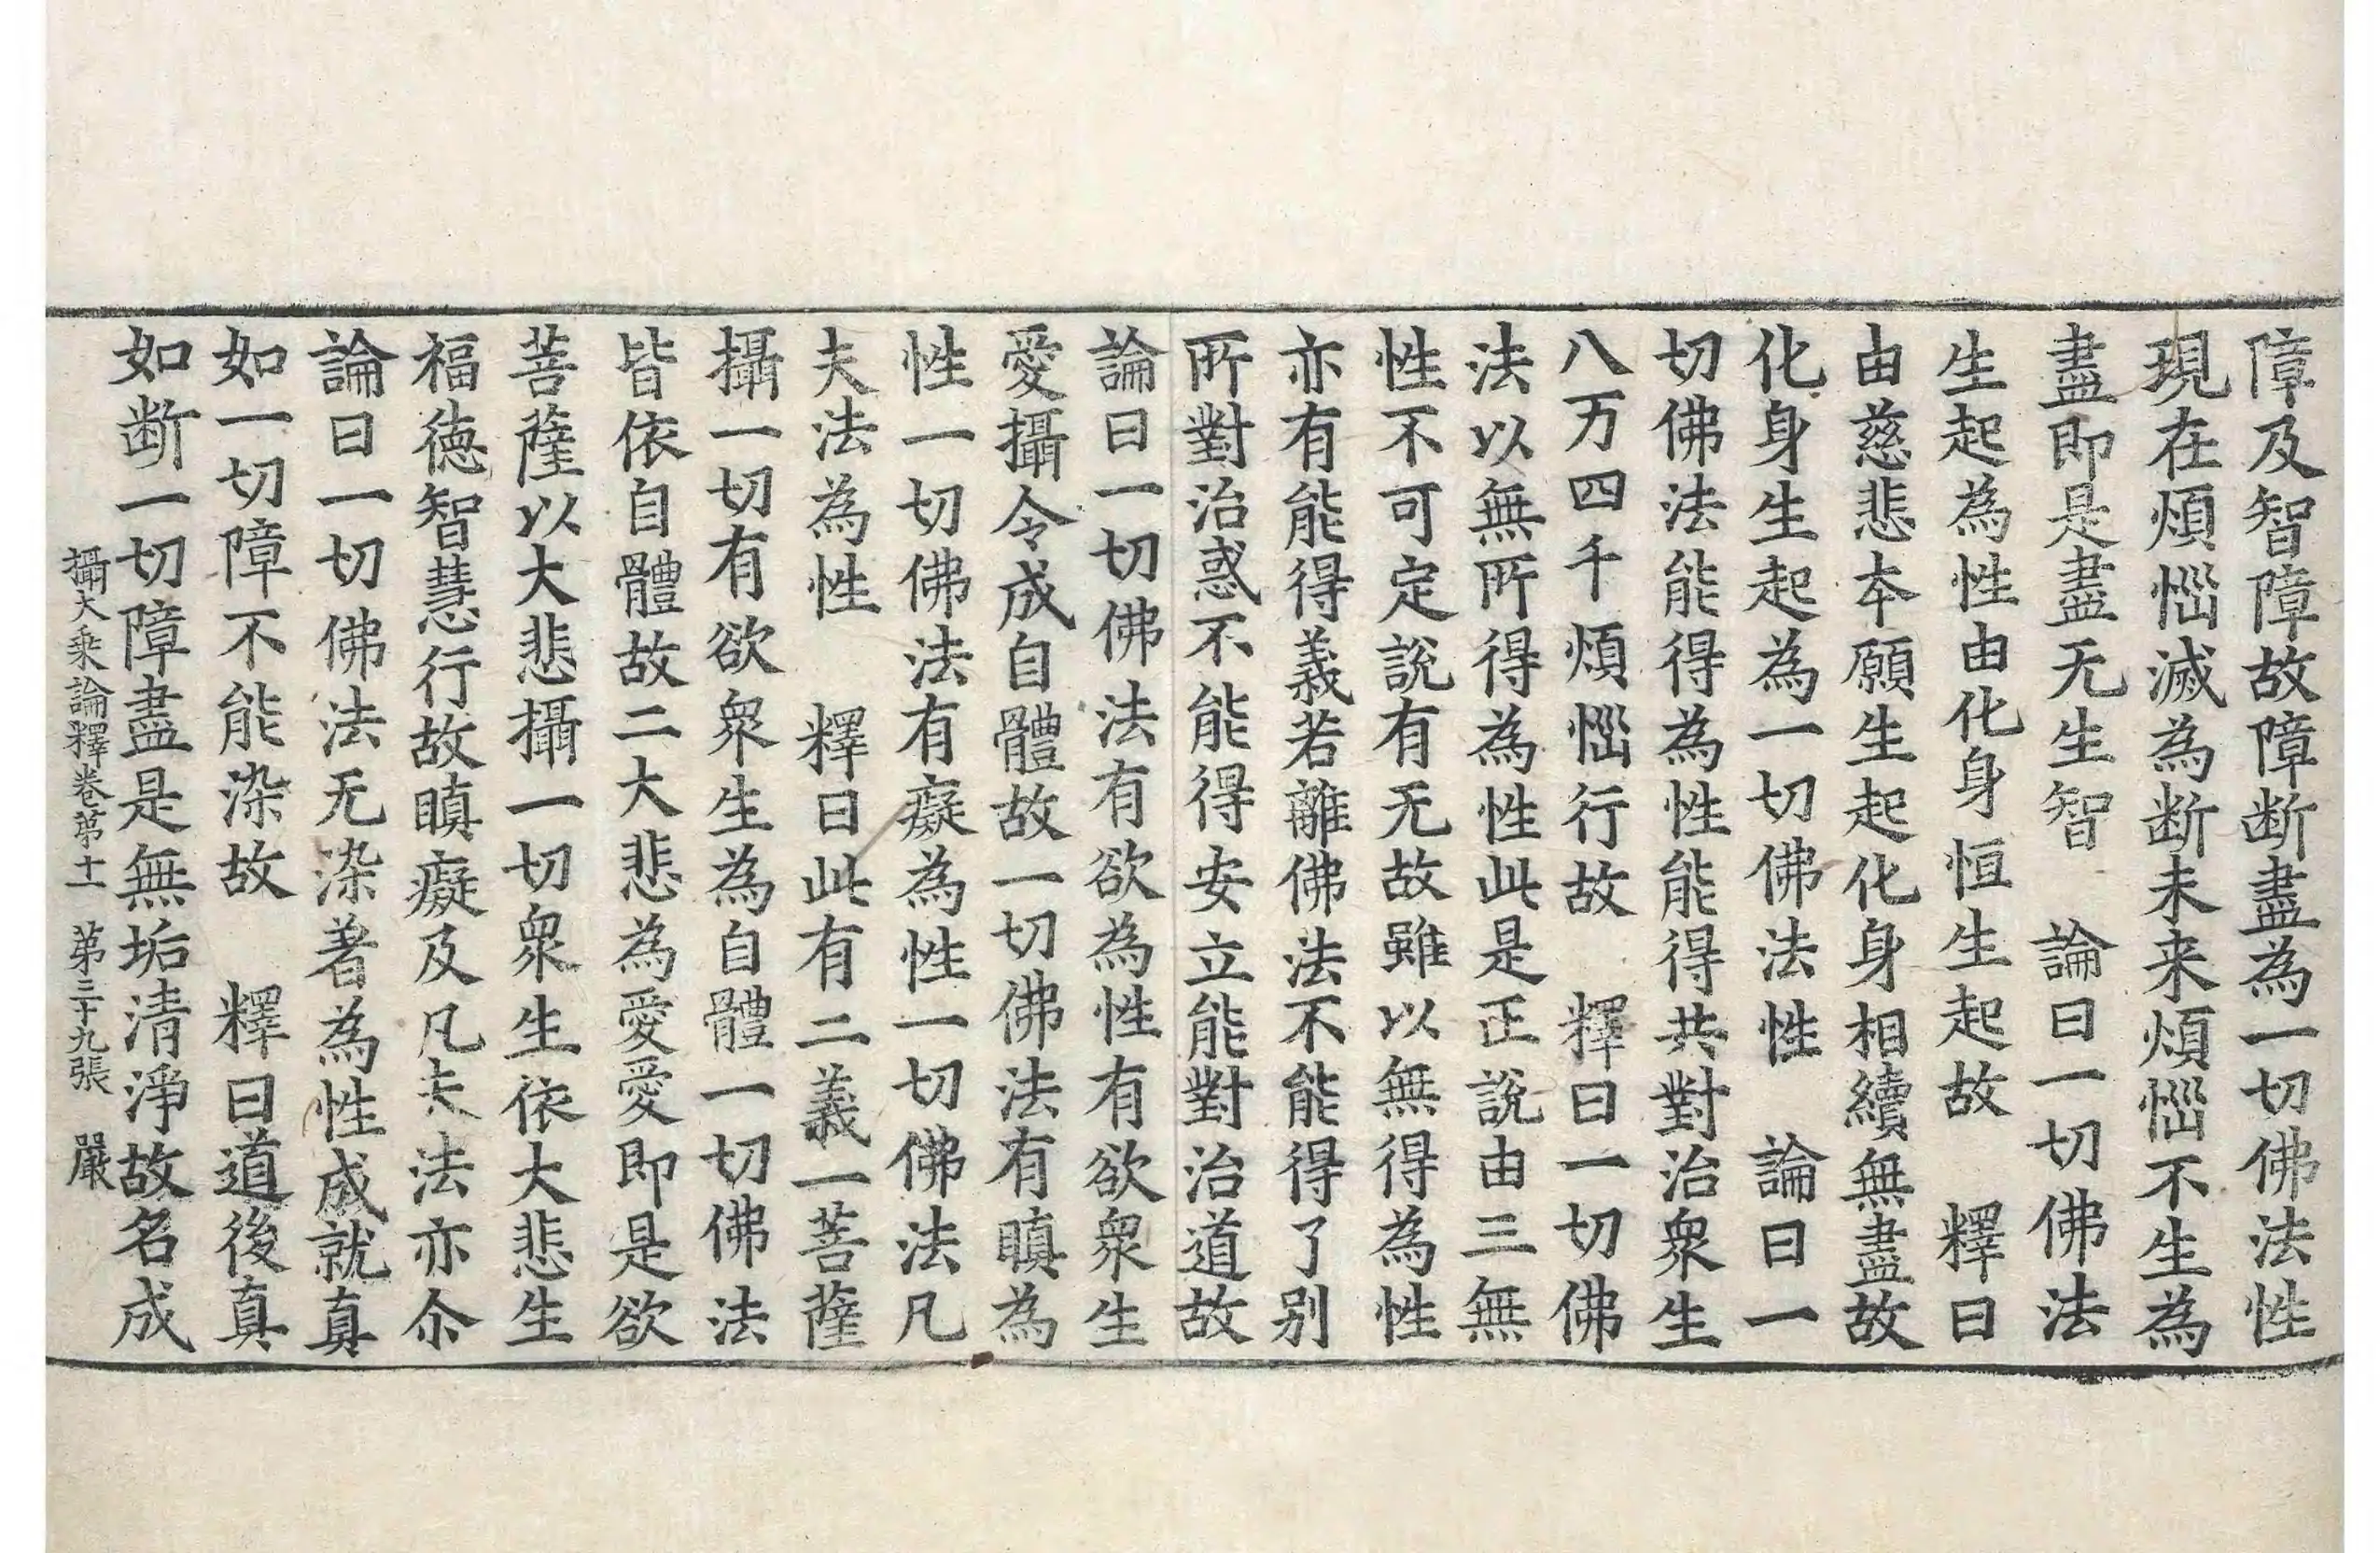 障及智障故障断盡為一切佛法性
現在煩惱滅為断未来煩惱不生為
盡即是盡无生智　論曰一切佛法
生起為性由化身恒生起故　釋曰
由慈悲本願生起化身相續無盡故
化身生起為一切佛法性　論曰一
切佛法能得為性能得共對治衆生
八万四千煩惱行故　釋曰一切佛
法以無所得為性此是正說由三無
性不可定說有无故雖以無得為性
亦有能得義若離佛法不能得了别
所對治惑不能得安立能對治道故
論曰一切佛法有欲為性有欲衆生
愛攝令成自體故一切佛法有瞋為
性一切佛法有癡為性一切佛法凡
夫法為性　釋曰此有二義一菩薩
攝一切有欲衆生為自體一切佛法
皆依自體故二大悲為愛愛即是欲
菩薩以大悲攝一切衆生依大悲生
福德智慧行故瞋癡及凡夫法亦尒
論曰一切佛法无染著為性成就真
如一切障不能染故　釋曰道後真
如断一切障盡是無垢清淨故名成
攝大乘論釋卷第十一　第三十九張　嚴